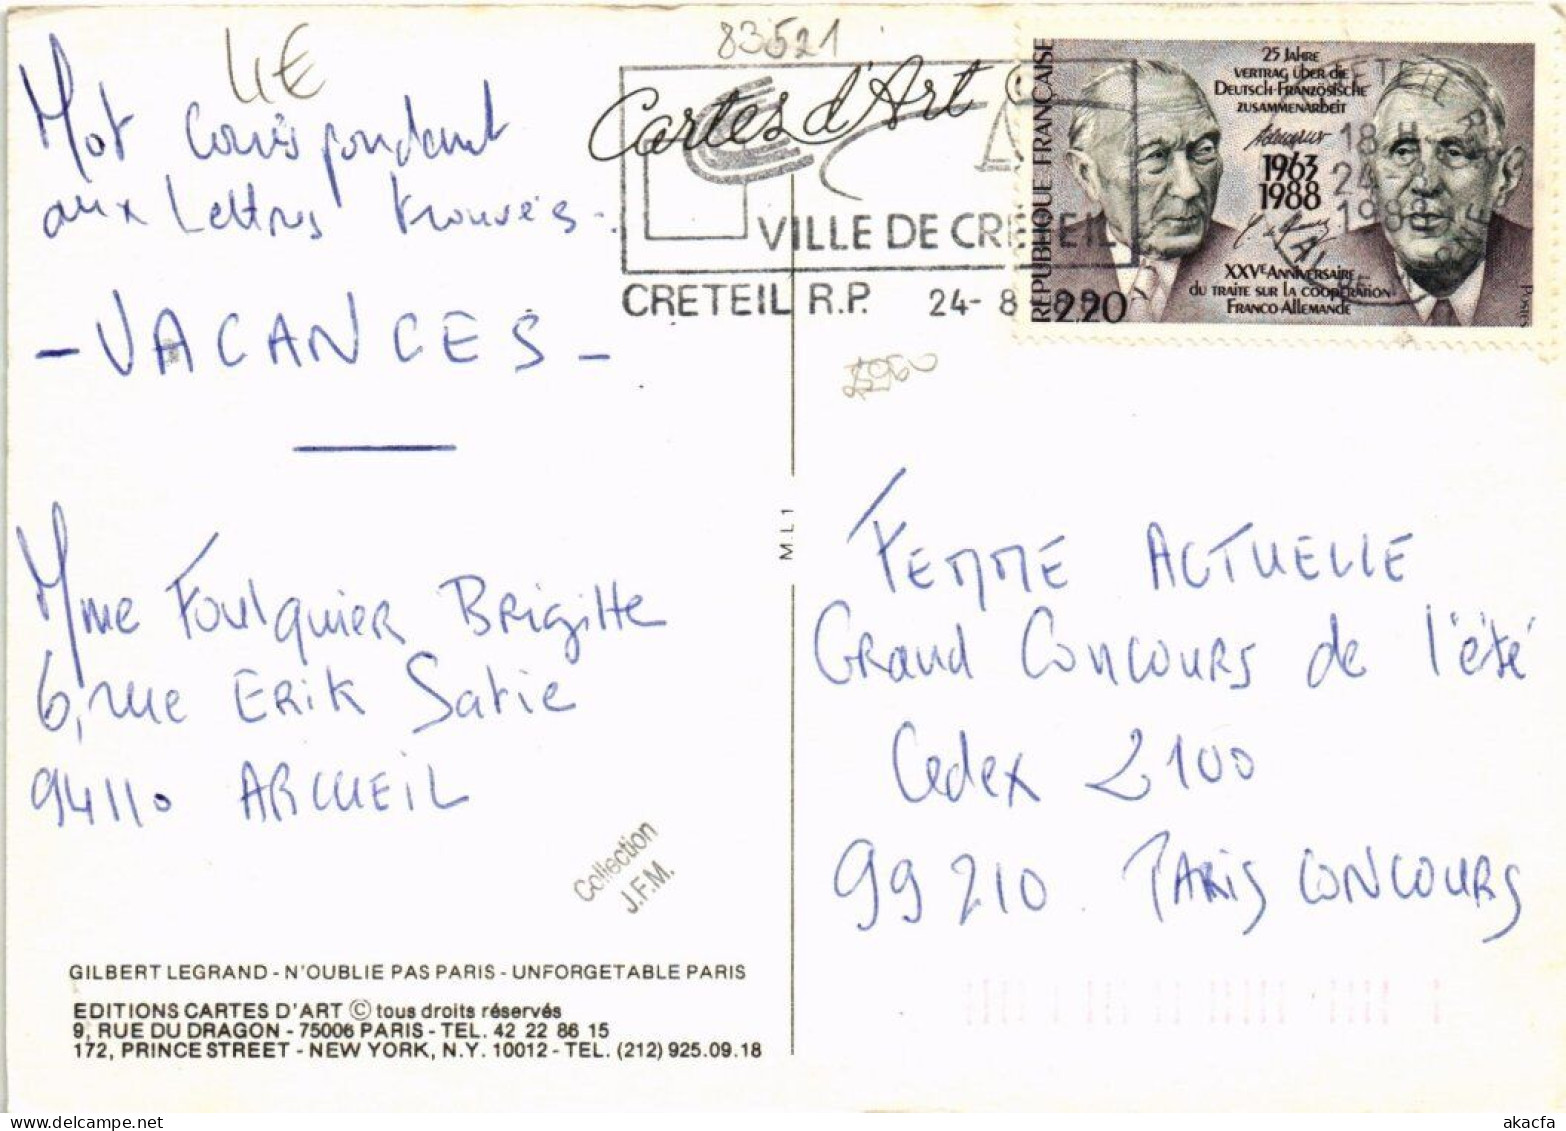 83521
4€
Mot correspondant
aux lettres trouvées.
- VACANCES -
Mme Foulquier Brigitte
6, rue Erik Satie
94110 ARCUEIL
Collection
J.F.M.
GILBERT LEGRAND - N'OUBLIE PAS PARIS - UNFORGETABLE PARIS
EDITIONS CARTES D'ART © tous droits réservés
9, RUE DU DRAGON - 75006 PARIS - TEL. 42 22 86 15
172, PRINCE STREET - NEW YORK, N.Y. 10012 - TEL. (212) 925.09.18
M.L 1
Cartes d'Art ©
VILLE DE CRETEIL
CRETEIL R.P. 24- 8
RÉPUBLIQUE FRANÇAISE
25 JAHRE
VERTRAG ÜBER DIE
DEUTSCH-FRANZÖSISCHE
ZUSAMMENARBEIT
Adenauer
1963
1988
XXVE ANNIVERSAIRE
DU TRAITE SUR LA COOPÉRATION
FRANCO-ALLEMANDE
2,20
POSTES
CRETEIL R.P.
18 H
24 - 8
1988
VAL DE MARNE
FEMME ACTUELLE
Grand Concours de l'été
Cedex 2100
99210 PARIS CONCOURS
akacfa